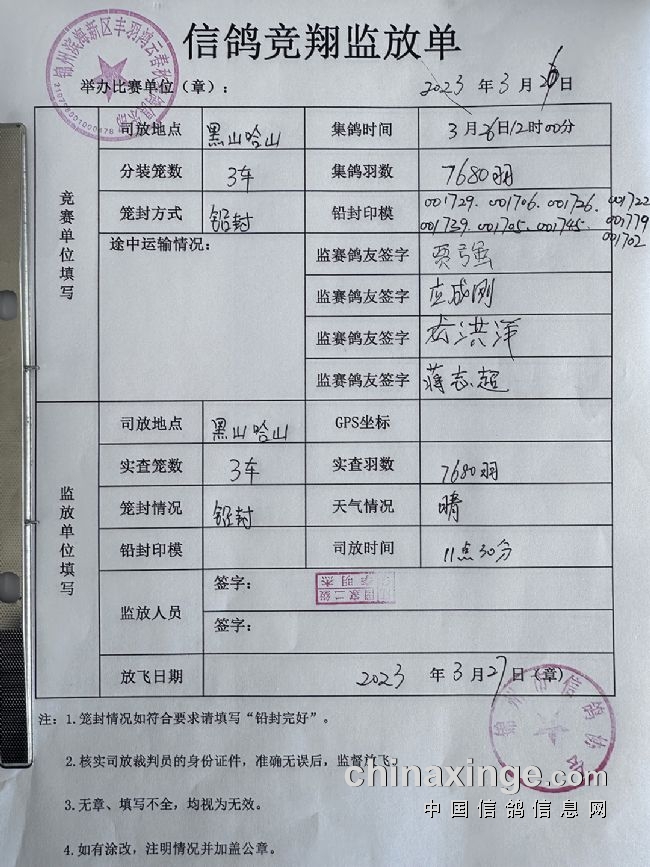 信鸽竞翔监放单
举办比赛单位（章）： 2023 年 3 月 26 日
竞赛单位填写
司放地点 黑山哈山 集鸽时间 3月26日12时00分
分装笼数 3车 集鸽羽数 7680羽
笼封方式 铅封 铅封印模 001729. 001706. 001726. 001722
001739. 001705. 001745. 001779
001702
途中运输情况： 监赛鸽友签字 贾强
监赛鸽友签字 应成刚
监赛鸽友签字 洪洋
监赛鸽友签字 蒋志超
监放单位填写
司放地点 黑山哈山 GPS坐标
实查笼数 3车 实查羽数 7680羽
笼封情况 铅封 天气情况 晴
铅封印模 司放时间 11点30分
监放人员 签字： 国家二级 李明杰
签字：
放飞日期 2023 年 3 月 27 日（章）
锦州市信鸽协会
注：1.笼封情况如符合要求请填写“铅封完好”。
2.核实司放裁判员的身份证件，准确无误后，监督放飞。
3.无章、填写不全，均视为无效。
4.如有涂改，注明情况并加盖公章。
chinaxinge.com
中国信鸽信息网